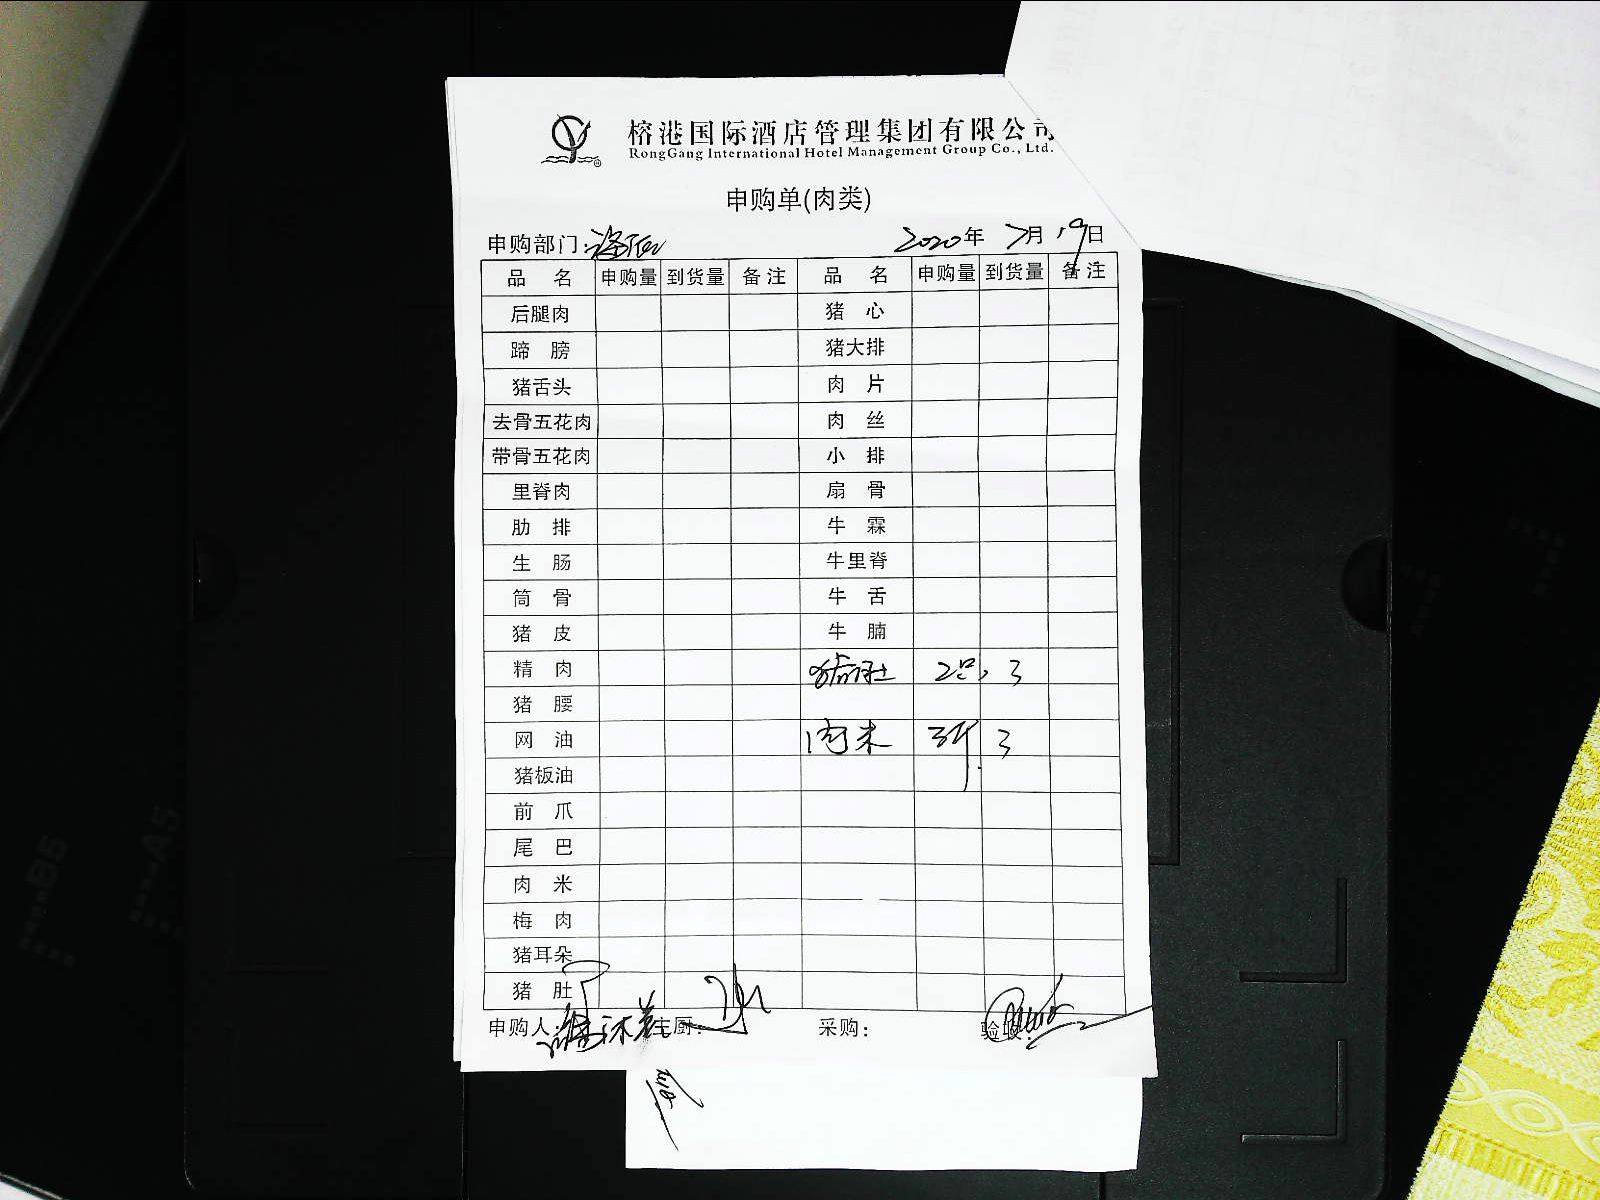 榕港国际酒店管理集团有限公司
RongGang International Hotel Management Group Co., Ltd.
申购单(肉类)
申购部门: 2020年 7月 19日
品 名 申购量 到货量 备注 品 名 申购量 到货量 备注
后腿肉 猪 心
蹄 膀 猪大排
猪舌头 肉 片
去骨五花肉 肉 丝
带骨五花肉 小 排
里脊肉 扇 骨
肋 排 牛 霖
生 肠 牛里脊
筒 骨 牛 舌
猪 皮 牛 腩
精 肉 猪肚 2只 3
猪 腰
网 油 肉末 3斤 3
猪板油
前 爪
尾 巴
肉 米
梅 肉
猪耳朵
猪 肚
申购人: 主厨: 采购: 验收:
B5
A5